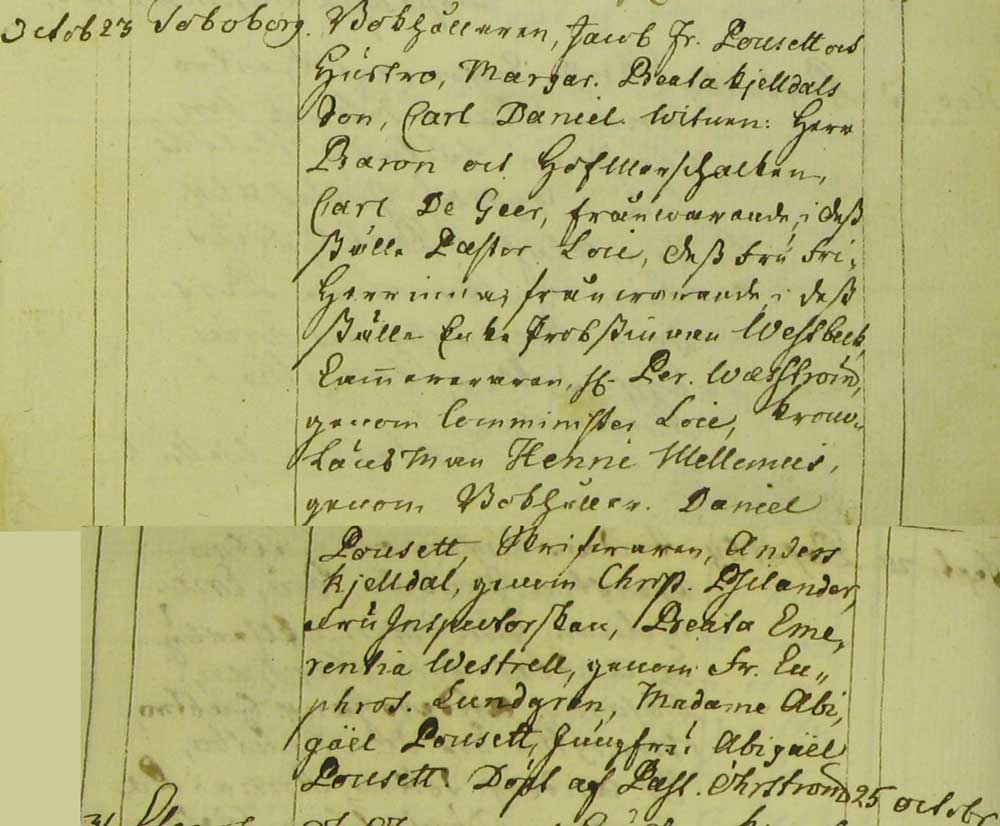 Octob 23 Toboborg. Bokhålleren, Jacob Fr. Pousett och
Hustro, Margar. Beata Kjelldals
Son, Carl Daniel. Witnen: Herr
Baron och HofMarschalken,
Carl De Geer, frånwarande, i deß
ställe Pastor Loie, deß Fru Fri-
Herrinna, frånwarande, i deß
ställe Enke Probstinnan Westbeck,
Cammereraren, H. Per. Wæsström,
genom Comminister Loie, Krono-
LänsMan Henric Mellenius,
genom Bokhåller. Daniel
Pousett, Skrifwaren, Anders
Kjelldal, genom Chrop. Psilander,
Fru Inspectorskan, Beata Eme,
rentia Westrell, genom Fr. Eu,,
phros. Lundgren, Madame Abi,
gäel Pousett, Jungfru Abigäel
Pousett. Döpt af Past. Öhrström 25 octobr
31